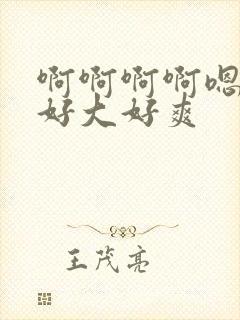 啊啊啊啊嗯
好大好爽
王茂亮